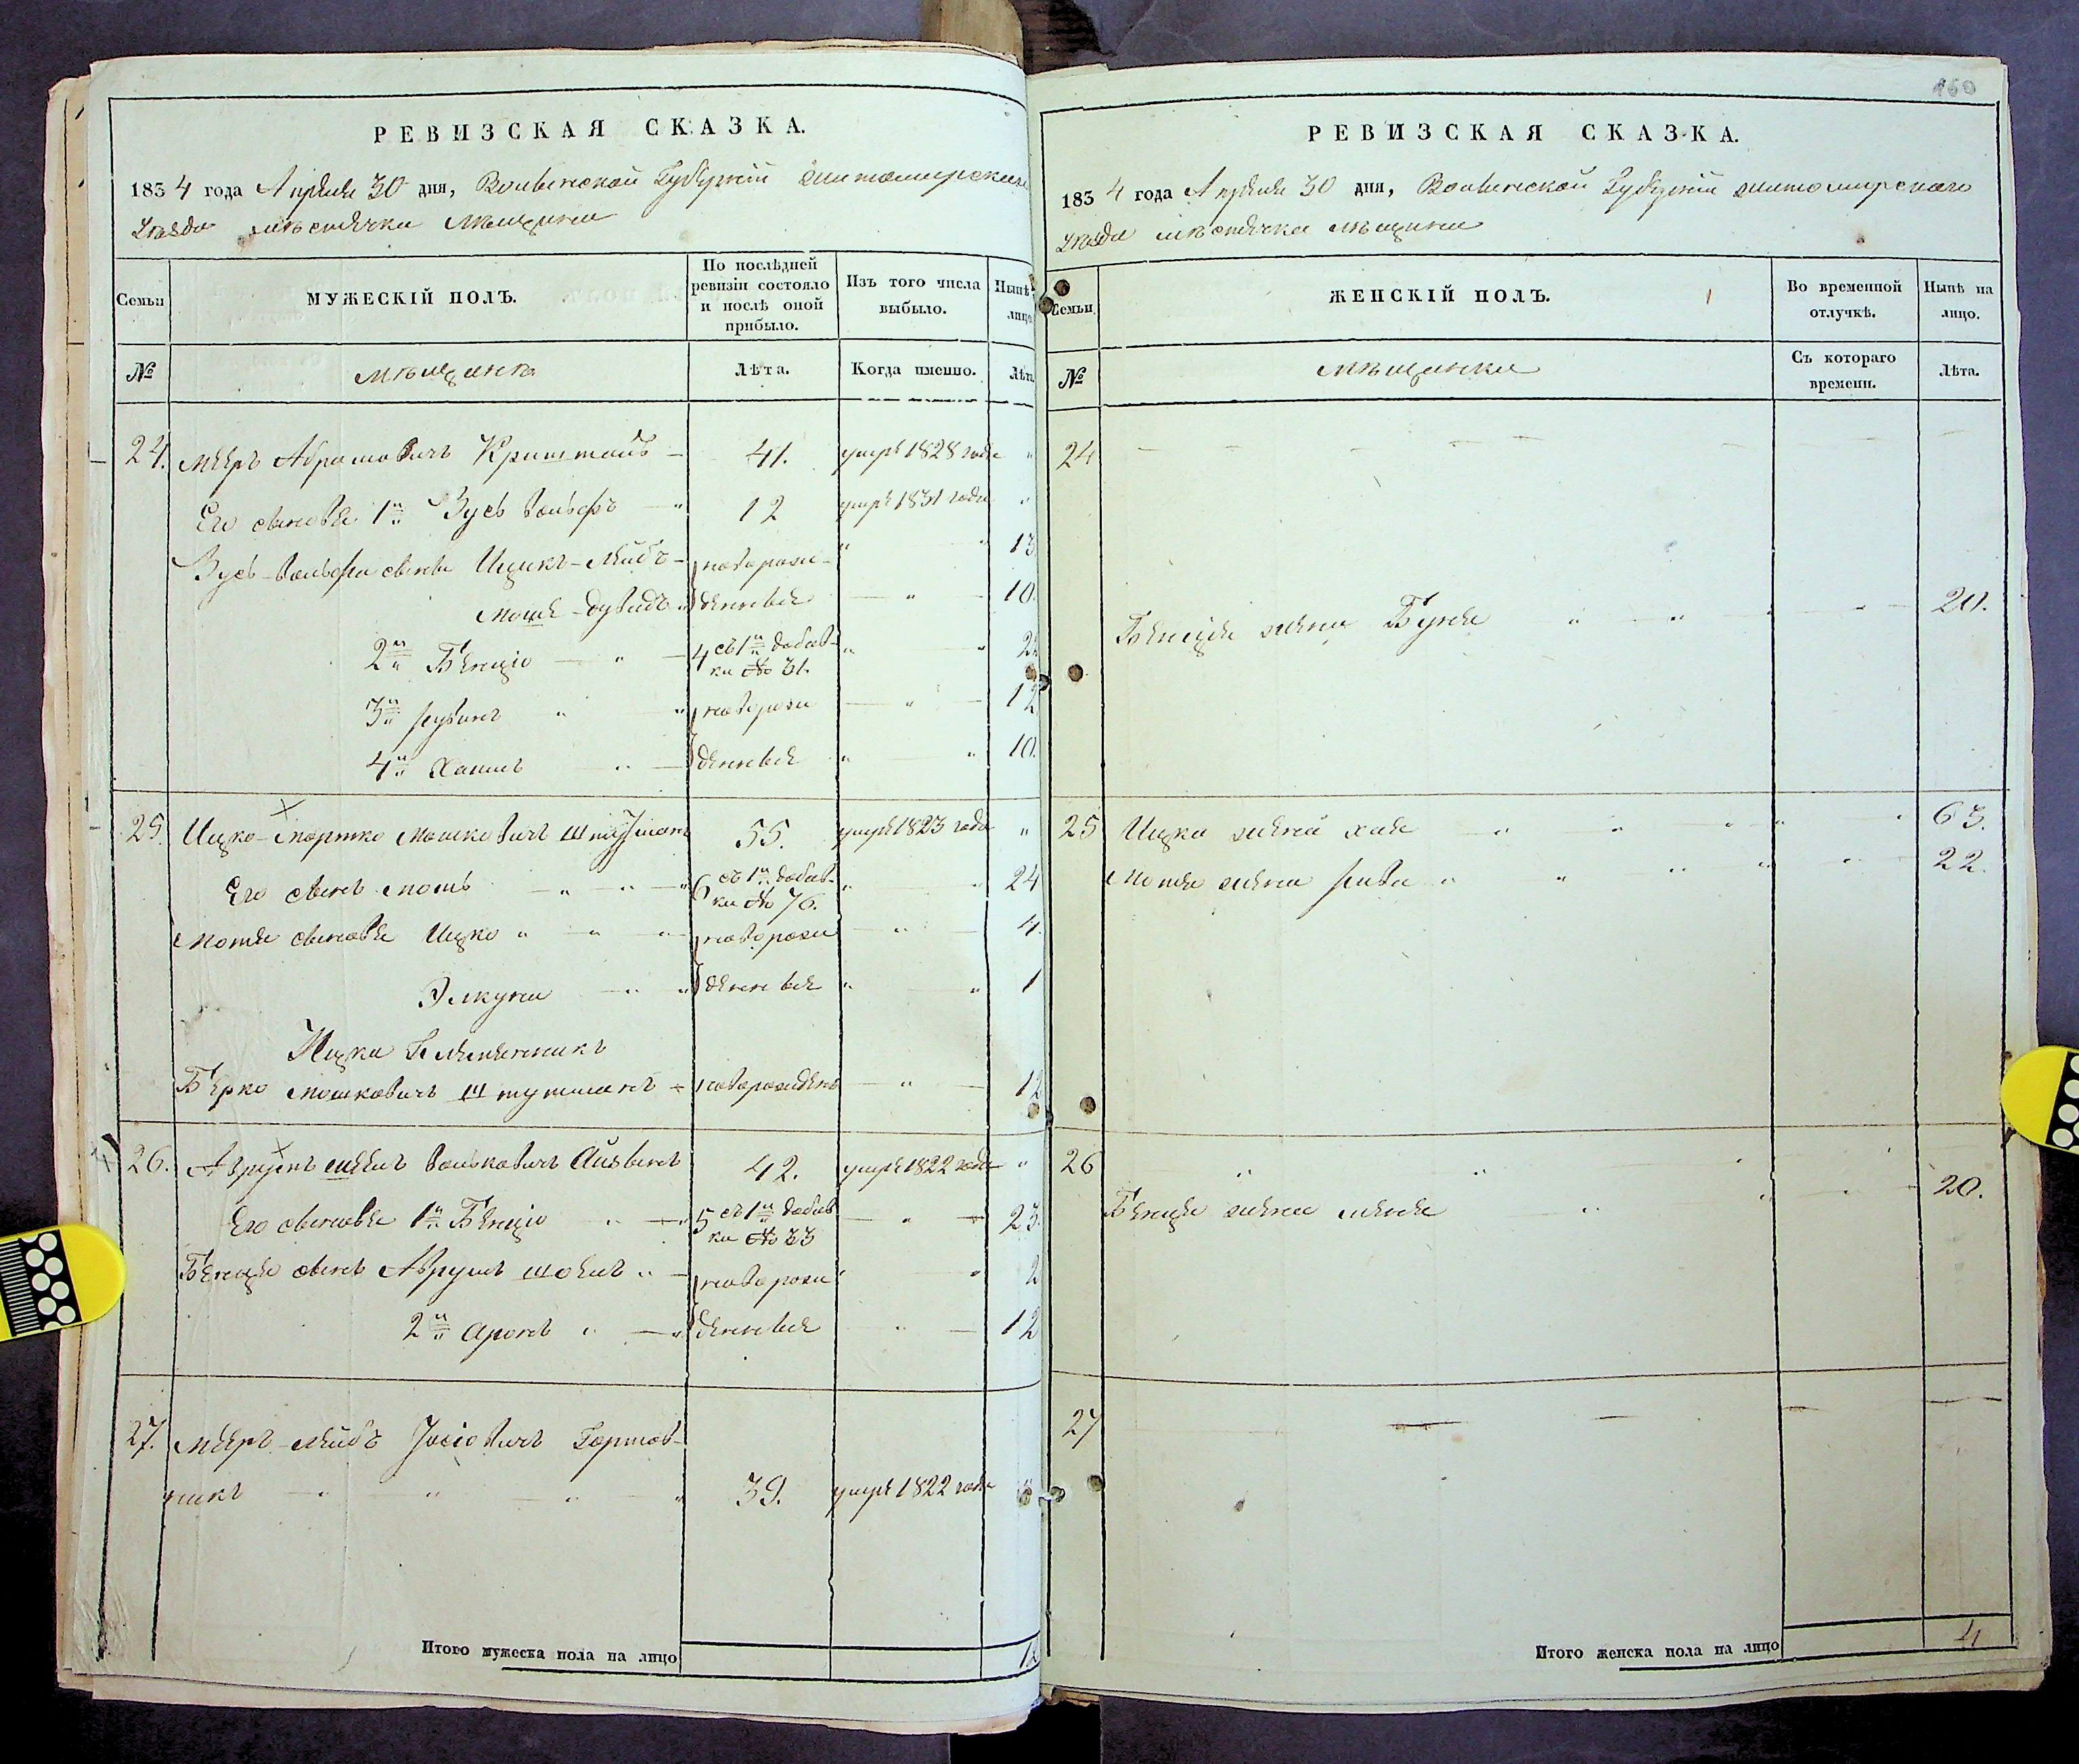 РЕВИЗСКАЯ СКАЗКА.
1834 года Апреля 30 дня, Волынской Губернии Житомирского
уезда местечка
Семьи
МУЖЕСКІЙ ПОЛЪ.
По послѣдней ревизіи состояло и послѣ оной прибыло.
Изъ того числа выбыло.
Нынѣ лицо
№
мѣщане
Лѣта.
Когда именно.
Лѣта
24. Мееръ Абрамовичъ Криштайъ 41. умре 1828 года
Его сыновья 1й Зусь Вольфъ 12 умре 1831 года
Зусь-Вольфа сыны Ицикъ-Лейбъ новорож- 13
Моше-Дувидъ денные 10.
2й Бенцiо 4 съ 1й добав- 22
ки № 31.
3й Рувинъ новорож 12
4й Хаимъ денные 10.
25. Ицко-Мортко Мошковичъ Штутманъ 55. умре 1823 года
Его сынъ Моть 6 съ 1й добав- 24
ки № 76.
Мотя сыновья Ицко новорож 4.
Элкуна денные 1
Ицка племянникъ
Берко Мошковичъ Штутманъ новорожденъ 12
26. Аврумъ Вольковичъ Айзыкъ 42. умре 1822 года
Его сыновья 1й Бенцiо 5 съ 1й добав 23.
ки № 33
Бенця сынъ Аврумъ новорож 2
2й Аронъ денные 12
27. Мееръ-Лейбъ Іосіовичъ Гортов-
никъ 39. умре 1822 года
Итого мужеска пола на лицо
150
РЕВИЗСКАЯ СКАЗКА.
1834 года Апреля 30 дня, Волынской Губернии Житомирского
уезда местечка
Семьи
ЖЕНСКІЙ ПОЛЪ.
Во временной отлучкѣ.
Нынѣ на лицо.
№
мѣщанки
Съ котораго времени.
Лѣта.
24
Бенция жена Буня 20.
25 Ицка жена Хая 63.
Мотя жена Рива 22.
26
Бенця жена 20.
27
Итого женска пола на лицо 4